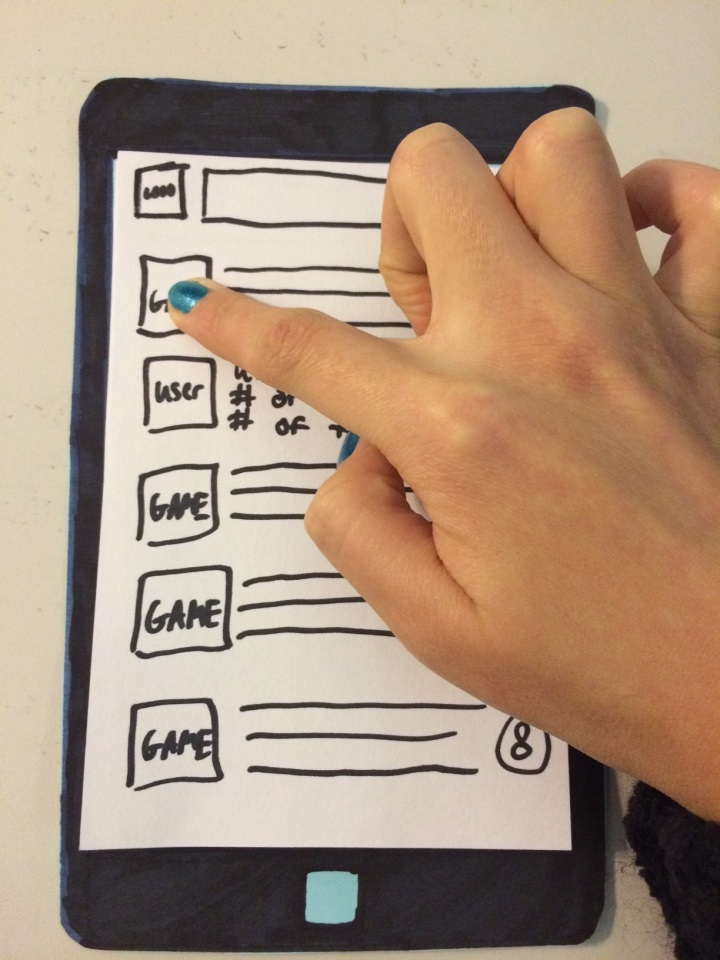 LOGO
user
#
# OF
GAME
GAME
GAME
8